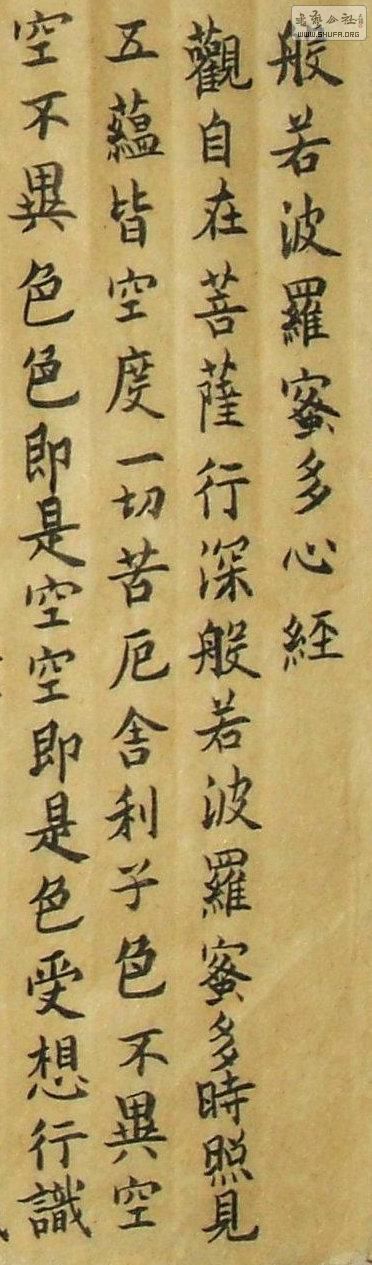 般若波羅蜜多心經
觀自在菩薩行深般若波羅蜜多時照見
五蘊皆空度一切苦厄舍利子色不異空
空不異色色即是空空即是色受想行識
WWW.SHUFA.ORG